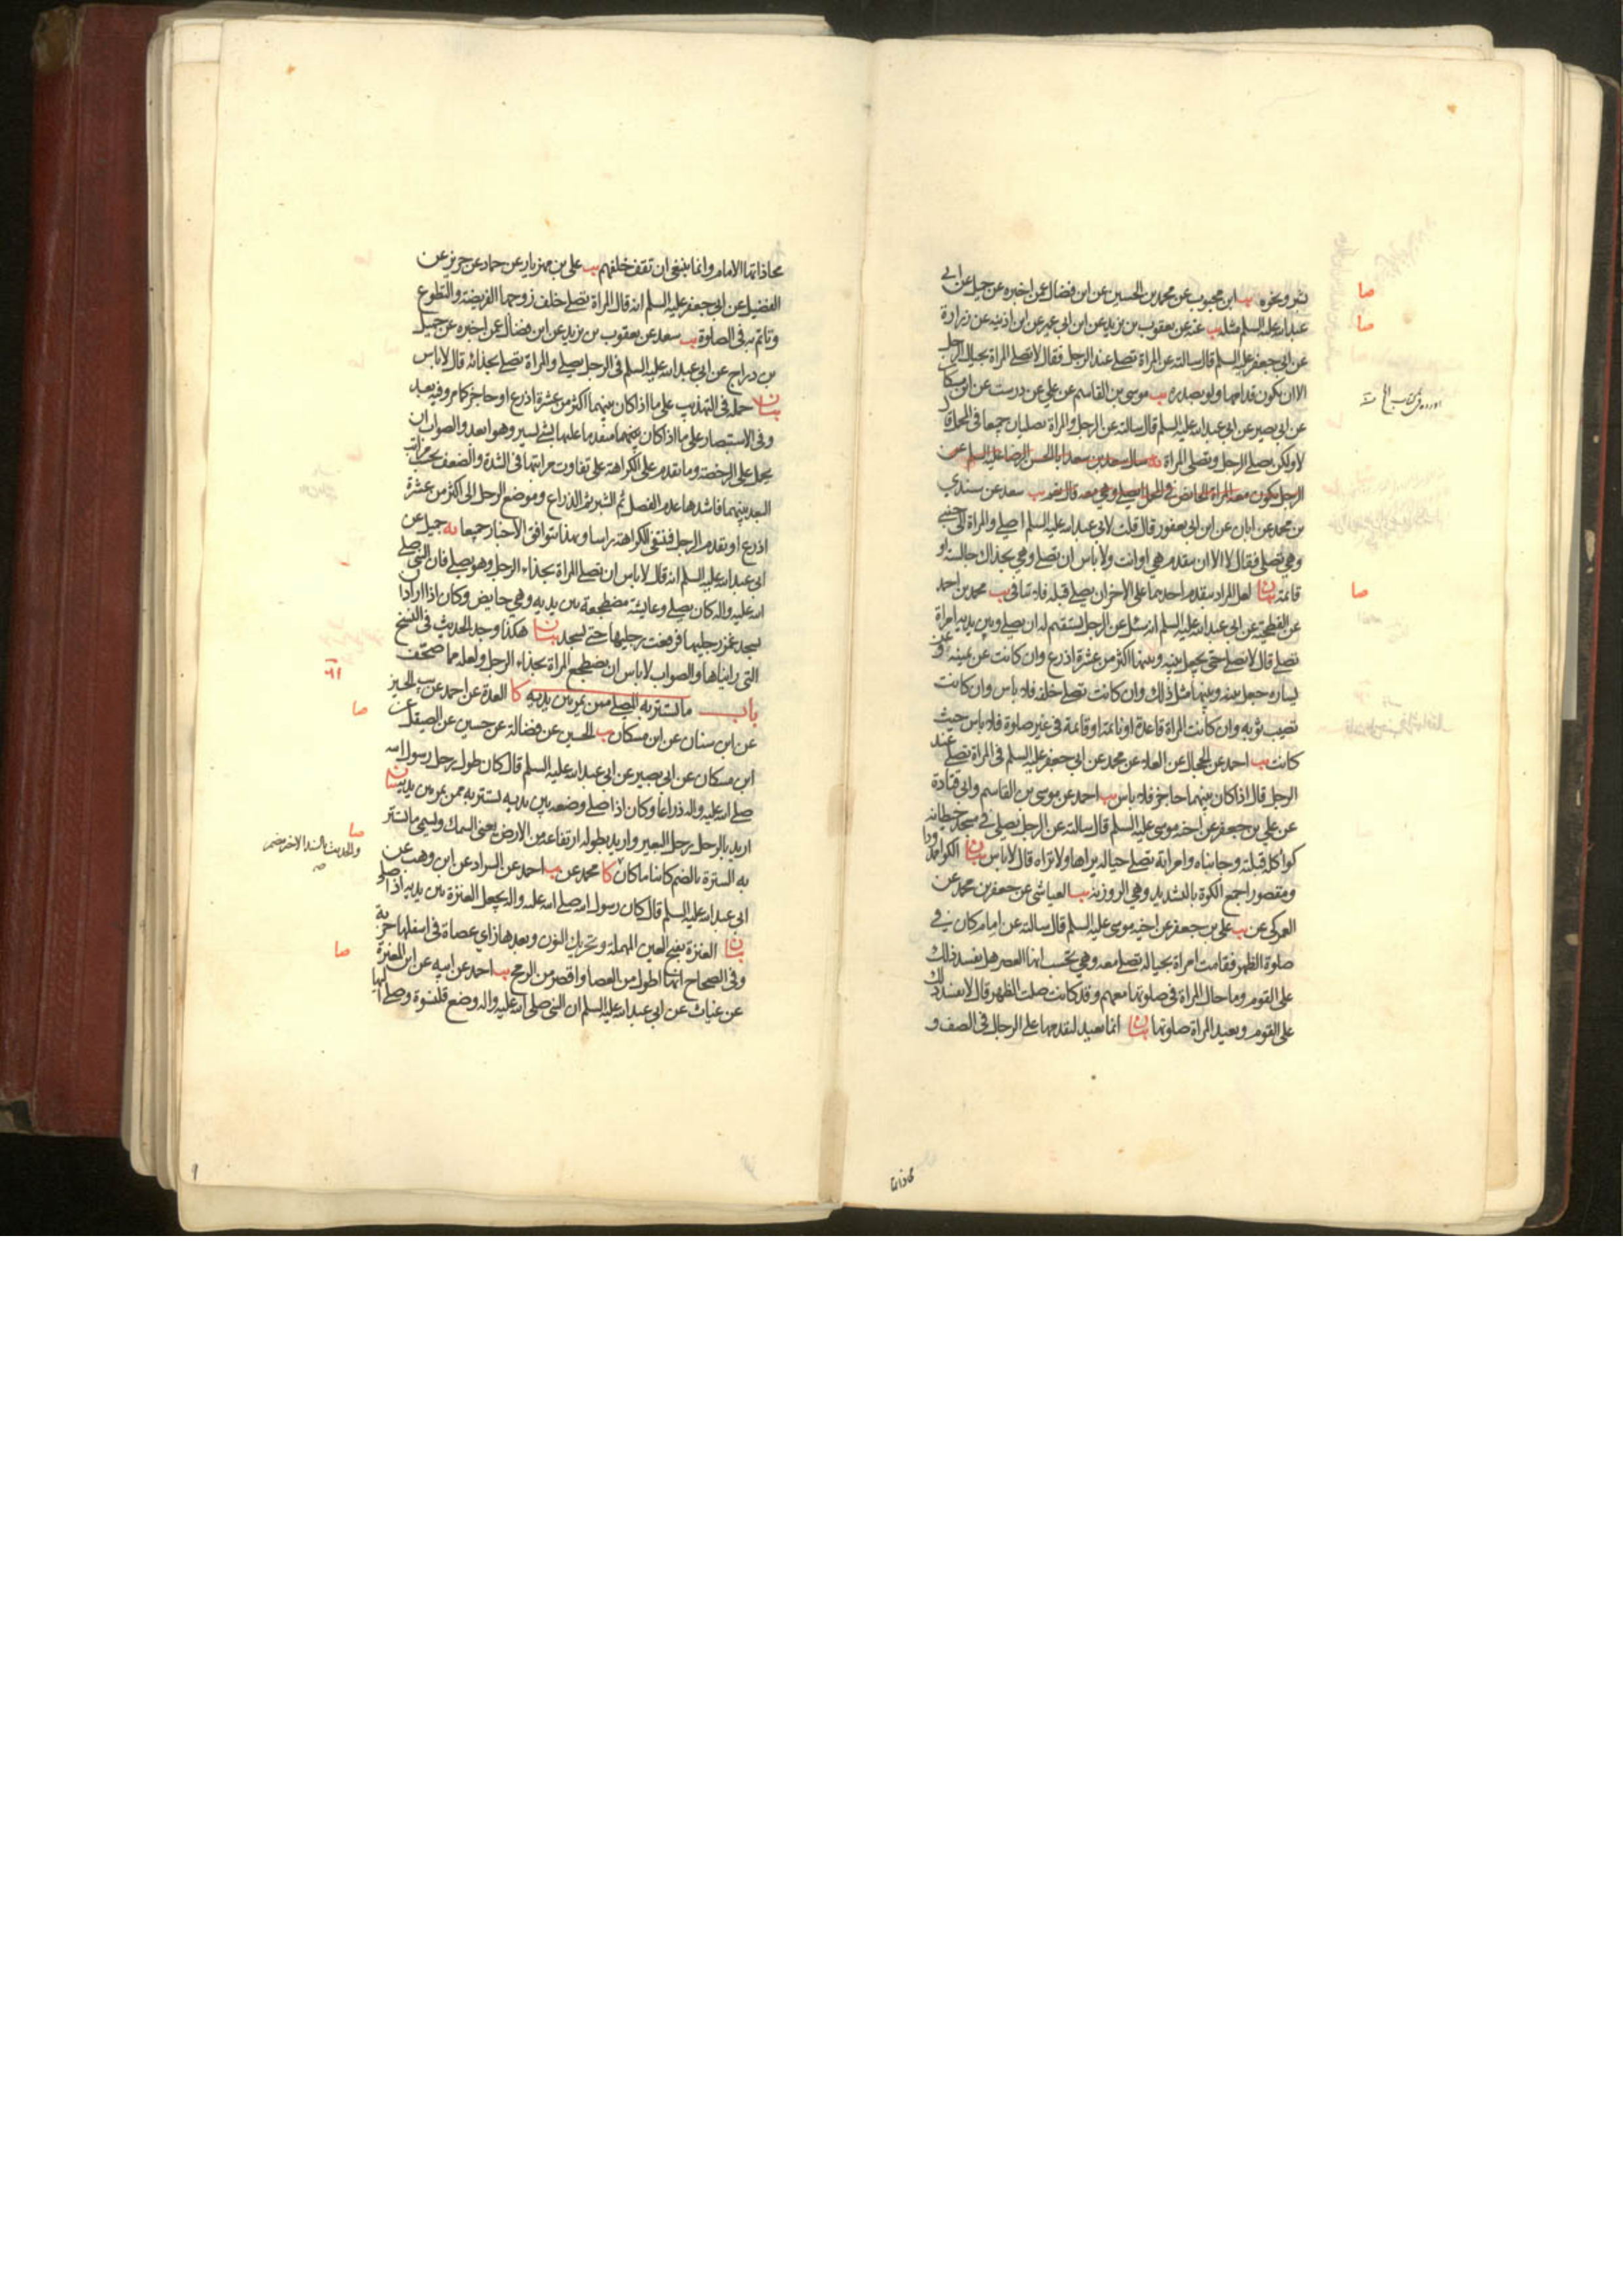 بشر ونحوه يب ابن محبوب عن محمد بن الحسين عن ابن فضال عمن اخبره عن جميل عن ابي
عبد الله عليه السلم مثله يب عنه عن يعقوب بن يزيد عن ابن ابي عمير عن ابن اذينة عن زرارة
عن ابي جعفر عليه السلم قال سالته عن المراة تصلي عند الرجل فقال لا تصلي المراة بحيال الرجل
الا ان يكون قدامها ولو بصدره يب موسى بن القاسم عن علي عن درست عن ابن مسكان
عن ابي بصير عن ابي عبد الله عليه السلم قال سالته عن الرجل والمراة يصليان جميعا في المحمل قال
لا ولكن يصلي الرجل وتصلي المراة يه سال سعد بن سعد ابا الحسن الرضا عليه السلم عن
الرجل يكون معه المراة الحائض في المحمل ايصلي وهي معه قال نعم يب سعد عن سندي
بن محمد عن ابان عن ابن ابي يعفور قال قلت لابي عبد الله عليه السلم اصلي والمراة الى جنبي
وهي تصلي فقال لا الا ان يتقدم هي او انت ولا باس ان تصلي وهي بحذاك جالسة او
قائمة بيان لعل المراد بتقدم احدهما على الاخر ان يصلي قبله فلا تنافي يب محمد بن احمد
عن الفطحية عن ابي عبد الله عليه السلم انه سئل عن الرجل يستقيم له ان يصلي وبين يديه امراة
تصلي قال لا تصلي حتى يجعل بينه وبينها اكثر من عشرة اذرع وان كانت عن يمينه او عن
يساره جعل بينه وبينها مثل ذلك وان كانت تصلي خلفه فلا باس وان كانت
تصيب ثوبه وان كانت المراة قاعدة او نائمة او قائمة في غير صلوة فلا باس حيث
كانت يب احمد عن الحجال عن العلا عن محمد عن ابي جعفر عليه السلم في المراة تصلي عند
الرجل قال اذا كان بينهما حاجز فلا باس يب احمد عن موسى بن القاسم وابي قتادة
عن علي بن جعفر عن اخيه موسى عليه السلم قال سالته عن الرجل يصلي في مسجد حيطانه
كواء كله قبلته وجانباه وامراته تصلي حياله يراها ولا تراه قال لا باس بيان الكوا ممدودا
ومقصورا جمع الكوة بالتشديد وهي الروزنة يب العياشي عن جعفر بن محمد عن
العمركي عن يب علي بن جعفر عن اخيه موسى عليه السلم قال سالته عن امام كان في
صلوة الظهر فقامت امراة بحياله تصلي معه وهي تحسب انها العصر هل يفسد ذلك
على القوم وما حال المراة في صلوتها معهم وقد كانت صلت الظهر قال لا يفسد ذلك
على القوم وتعيد المراة صلوتها بيان انما تعيد لتقدمها على الرجال في الصف و
صا
صا
صا
محاذاتها
محاذاتها الامام وانما ينبغي ان تقف خلفهم يب علي بن مهزيار عن حماد عن حريز عن
الفضيل عن ابي جعفر عليه السلم انه قال المراة تصلي خلف زوجها الفريضة والتطوع
وتاتم به في الصلوة يب سعد عن يعقوب بن يزيد عن ابن فضال عمن اخبره عن جميل
بن دراج عن ابي عبد الله عليه السلم في الرجل يصلي والمراة تصلي بحذائه قال لا باس
بيان حمله في التهذيب على ما اذا كان بينهما اكثر من عشرة اذرع او حاجز كما مر وفيه بعد
وفي الاستبصار على ما اذا كان بينهما متقدما عليها بشي يسير وهو ابعد والصواب ان
يحمل على الرخصة وما تقدم على الكراهة على تفاوت مراتبها في الشدة والضعف بحسب مراتب
البعد بينهما فاشدها عدم الفصل ثم الشبر ثم الذراع وموضع الرجل الى اكثر من عشرة
اذرع او تقدم الرجل فتنتفي الكراهة راسا وبهذا تتوافق الاخبار جميعا يه جميل عن
ابي عبد الله عليه السلم انه قال لا باس ان تصلي المراة بحذاء الرجل وهو يصلي فان النبي صلى
الله عليه واله كان يصلي وعايشة مضطجعة بين يديه وهي حايض وكان اذا اراد ان
يسجد غمز رجليها فرفعت رجليها حتى يسجد بيان هكذا وجد الحديث في النسخ
التي رايناها والصواب لا باس ان تضطجع المراة بحذاء الرجل ولعله مما صحف
باب ما يستتر به المصلي ممن يمر بين يديه كا العدة عن احمد عن يب الحسين
عن ابن سنان عن ابن مسكان يب الحسين عن فضالة عن حسين عن الصيقل عن
ابن مسكان عن ابي بصير عن ابي عبد الله عليه السلم قال كان طول رحل رسول الله
صلى الله عليه واله ذراعا وكان اذا صلى وضعه بين يديه يستتر به ممن يمر بين يديه بيان
اريد بالرحل رحل البعير واريد بطوله ارتفاعه من الارض يعني السمك ويسمى ما يستتر
به السترة بالضم كائنا ما كان كا محمد عن يب احمد عن السراد عن ابن وهب عن
ابي عبد الله عليه السلم قال كان رسول الله صلى الله عليه واله يجعل العنزة بين يديه اذا صلى
بيان العنزة بفتح العين المهملة وتحريك النون وبعدها زاي عصاة في اسفلها حربة
وفي الصحاح انها اطول من العصا واقصر من الرمح يب احمد عن ابيه عن ابن المغيرة
عن غياث عن ابي عبد الله عليه السلم ان النبي صلى الله عليه واله وضع قلنسوة وصلى اليها
صا
صا
والحديث بالسند الاخر مضمر
صا